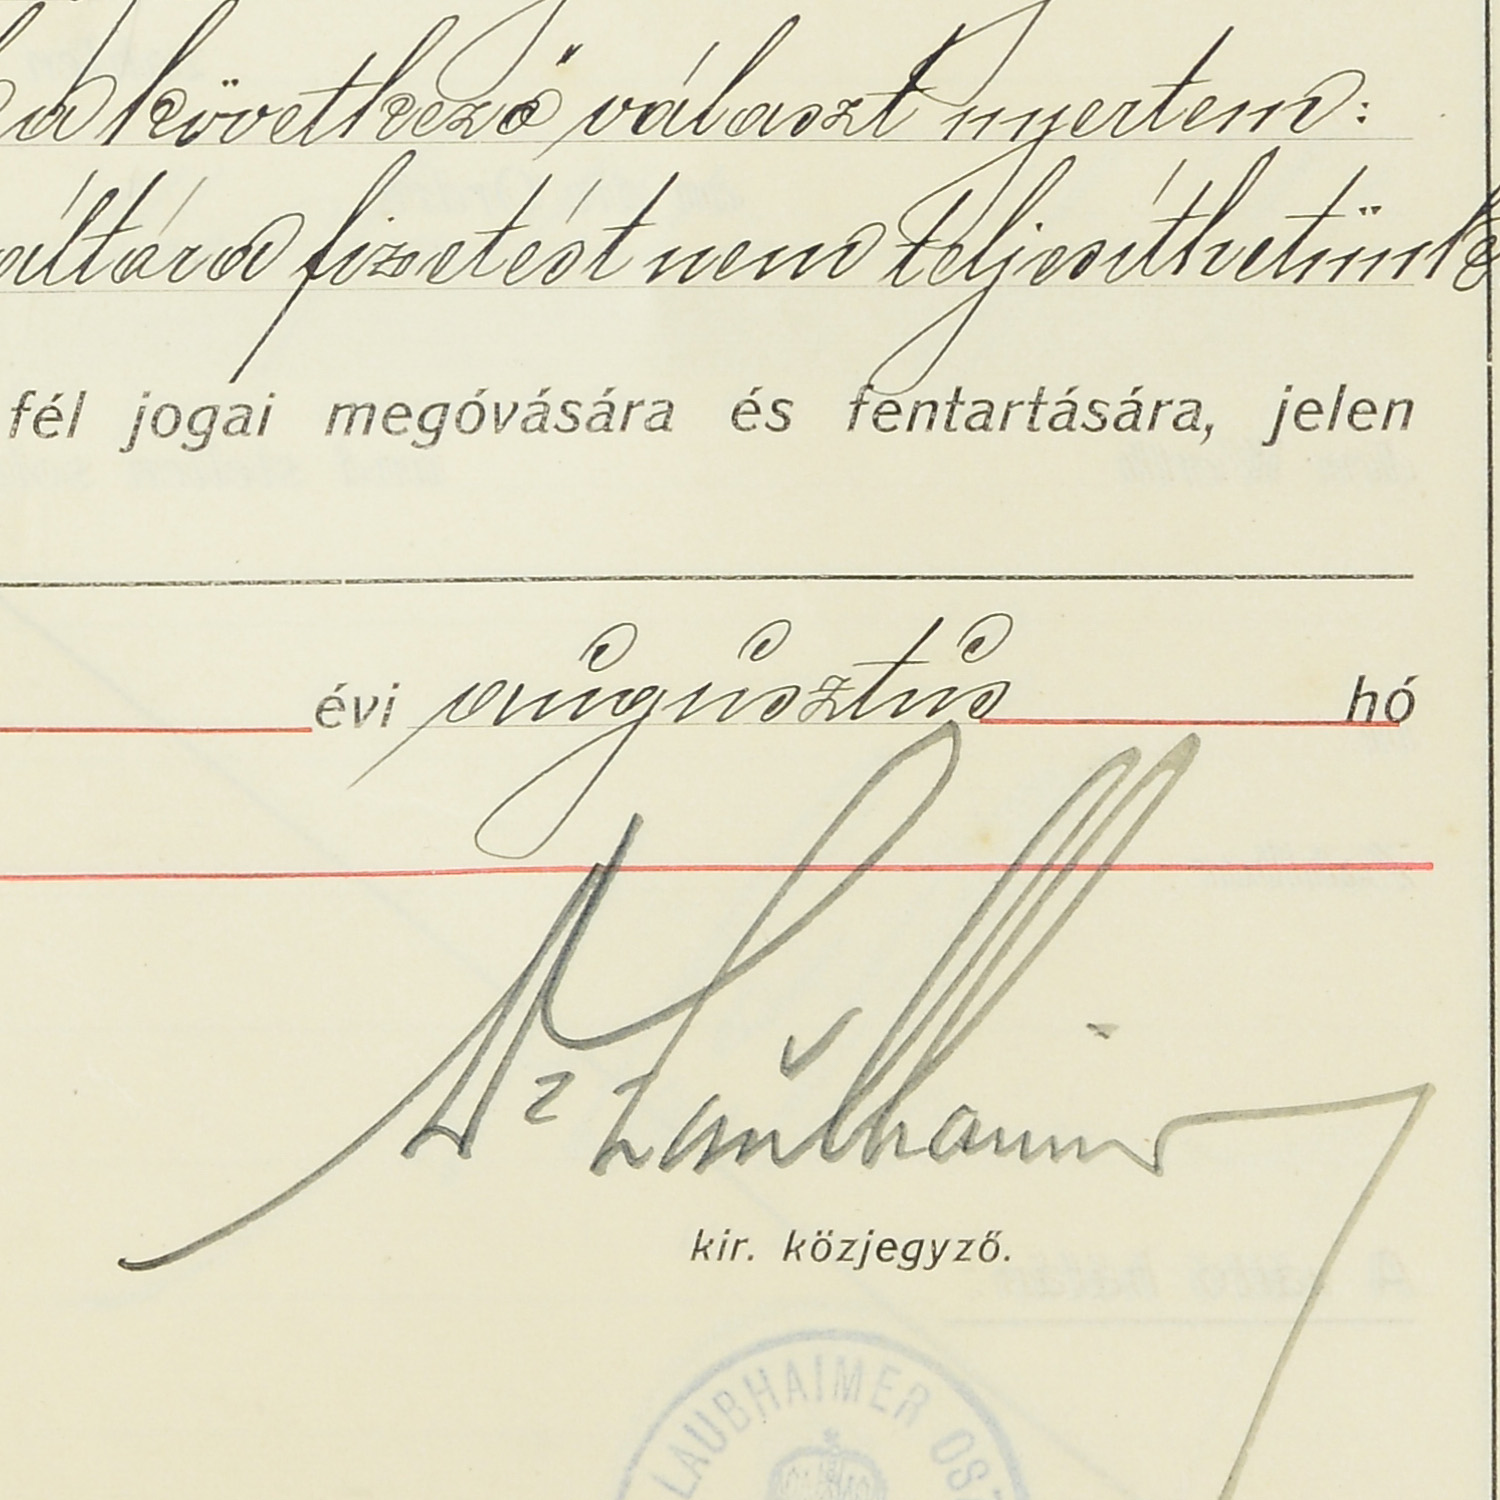 a következő választ nyertem:
váltóra fizetést nem teljesíthetünk
fél jogai megóvására és fentartására, jelen
évi augusztus hó
Dr Laubhaimer
kir. közjegyző.
LAUBHAIMER OSZ